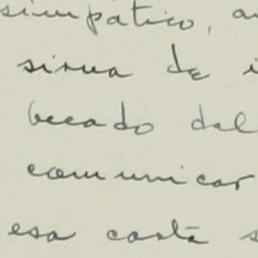 simpático, a
sirva de i
becado del
comunicar
esa carta s